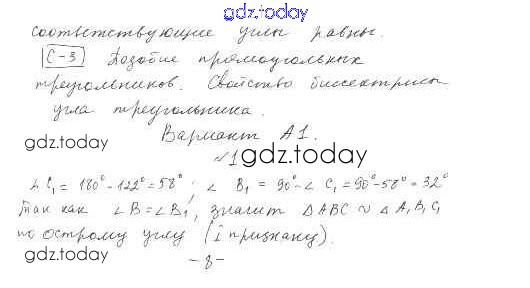 gdz.today
соответствующие углы равны.
С-3 Подобие прямоугольных
треугольников. Свойство биссектрисы
угла треугольника.
gdz.today
Вариант А1.
№1 gdz.today
∠ C₁ = 180° - 122° = 58°; ∠ B₁ = 90° - ∠ C₁ = 90° - 58° = 32°
Так как ∠B = ∠B₁, значит △ABC ∾ △A₁B₁C₁
по острому углу (I признаку).
gdz.today
- 8 -